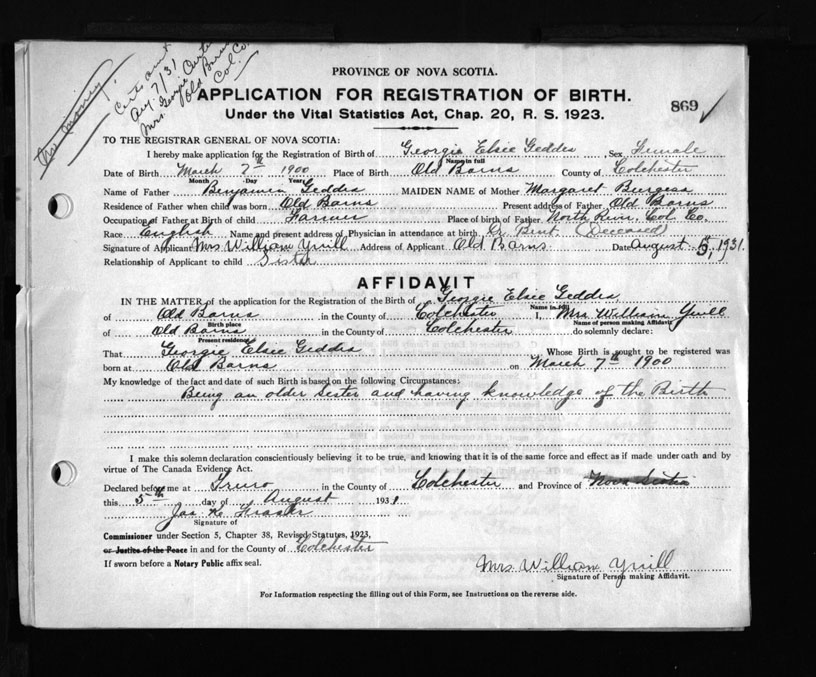 Cert sent
Aug 7/31
Mrs. Georgie
Old Barns
Col. Co.
PROVINCE OF NOVA SCOTIA.
APPLICATION FOR REGISTRATION OF BIRTH. 869
Under the Vital Statistics Act, Chap. 20, R. S. 1923.
TO THE REGISTRAR GENERAL OF NOVA SCOTIA:
I hereby make application for the Registration of Birth of Georgie Elsie Geddis Sex Female
Name in full
Date of Birth March 7th 1900 Place of Birth Old Barns County of Colchester
Month Day Year
Name of Father Benjamin Geddis MAIDEN NAME of Mother Margaret Burgess
Residence of Father when child was born Old Barns Present address of Father Old Barns
Occupation of Father at Birth of child Farmer Place of birth of Father North River, Col. Co.
Race English Name and present address of Physician in attendance at birth Dr Bent (Deceased)
Signature of Applicant Mrs William Yuill Address of Applicant Old Barns Date August 5, 1931.
Relationship of Applicant to child Sister
AFFIDAVIT
IN THE MATTER of the application for the Registration of the Birth of Georgie Elsie Geddis
Name in full
of Old Barns in the County of Colchester I, Mrs. William Yuill
Birth place Name of person making Affidavit
of Old Barns in the County of Colchester do solemnly declare:
Present residence
That Georgie Elsie Geddis Whose Birth is sought to be registered was
born at Old Barns on March 7th 1900
My knowledge of the fact and date of such Birth is based on the following Circumstances:
Being an older sister and having knowledge of the Birth
I make this solemn declaration conscientiously believing it to be true, and knowing that it is of the same force and effect as if made under oath and by
virtue of The Canada Evidence Act.
Declared before me at Truro in the County of Colchester and Province of Nova Scotia
this 5th day of August 1931
Jas R. Fraser
Signature of
Commissioner under Section 5, Chapter 38, Revised Statutes, 1923,
or Justice of the Peace in and for the County of Colchester
If sworn before a Notary Public affix seal.
Mrs William Yuill
Signature of Person making Affidavit.
For Information respecting the filling out of this Form, see Instructions on the reverse side.